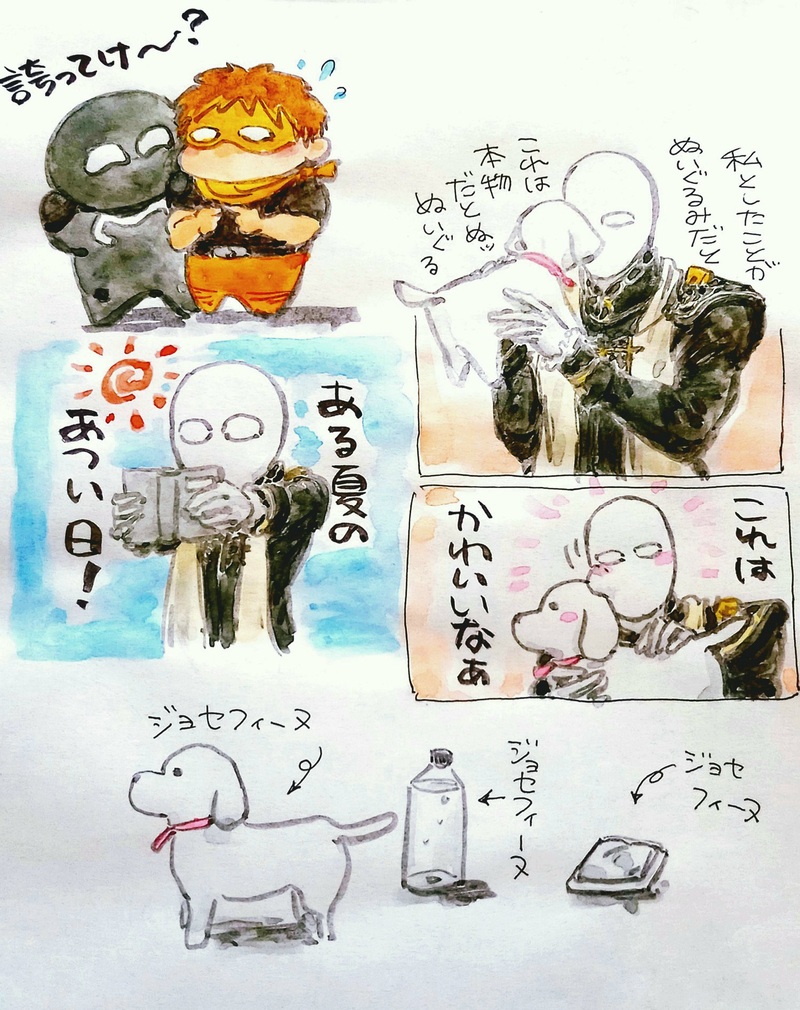 誇ってけ〜?
私としたことが
ぬいぐるみだと
これは
本物
だとぬッ
ぬいぐる
ある夏の
あつい日!
これは
かわいいなぁ
ジョセフィーヌ
ジョセフィーヌ
ジョセ
フィーヌ